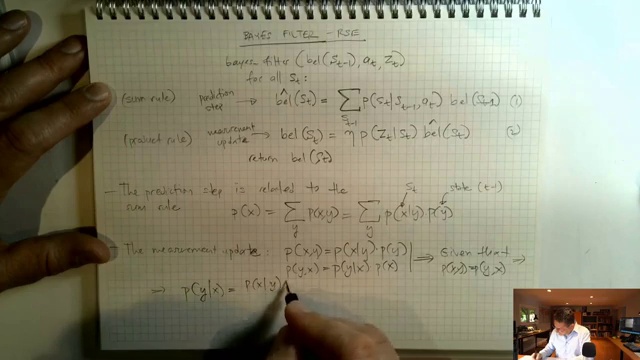 BAYES FILTER - RSE
bayes-filter (bel(St-1), at, Zt)
for all St:
(sum rule) prediction step → b̂el(St) = ∑St-1 p(St|St-1, at) bel(St-1) (1)
(product rule) measurement update → bel(St) = η p(Zt|St) b̂el(St) (2)
return bel(St)
- The prediction step is related to the St state (t-1)
sum rule p(x) = ∑y p(x,y) = ∑y p(x|y) p(y)
- The measurement update: p(x,y) = p(x|y)·p(y) ⟹ Given that ⟹
p(y,x) = p(y|x) p(x) p(x,y) = p(y,x)
⟹ p(y|x) = p(x|y)